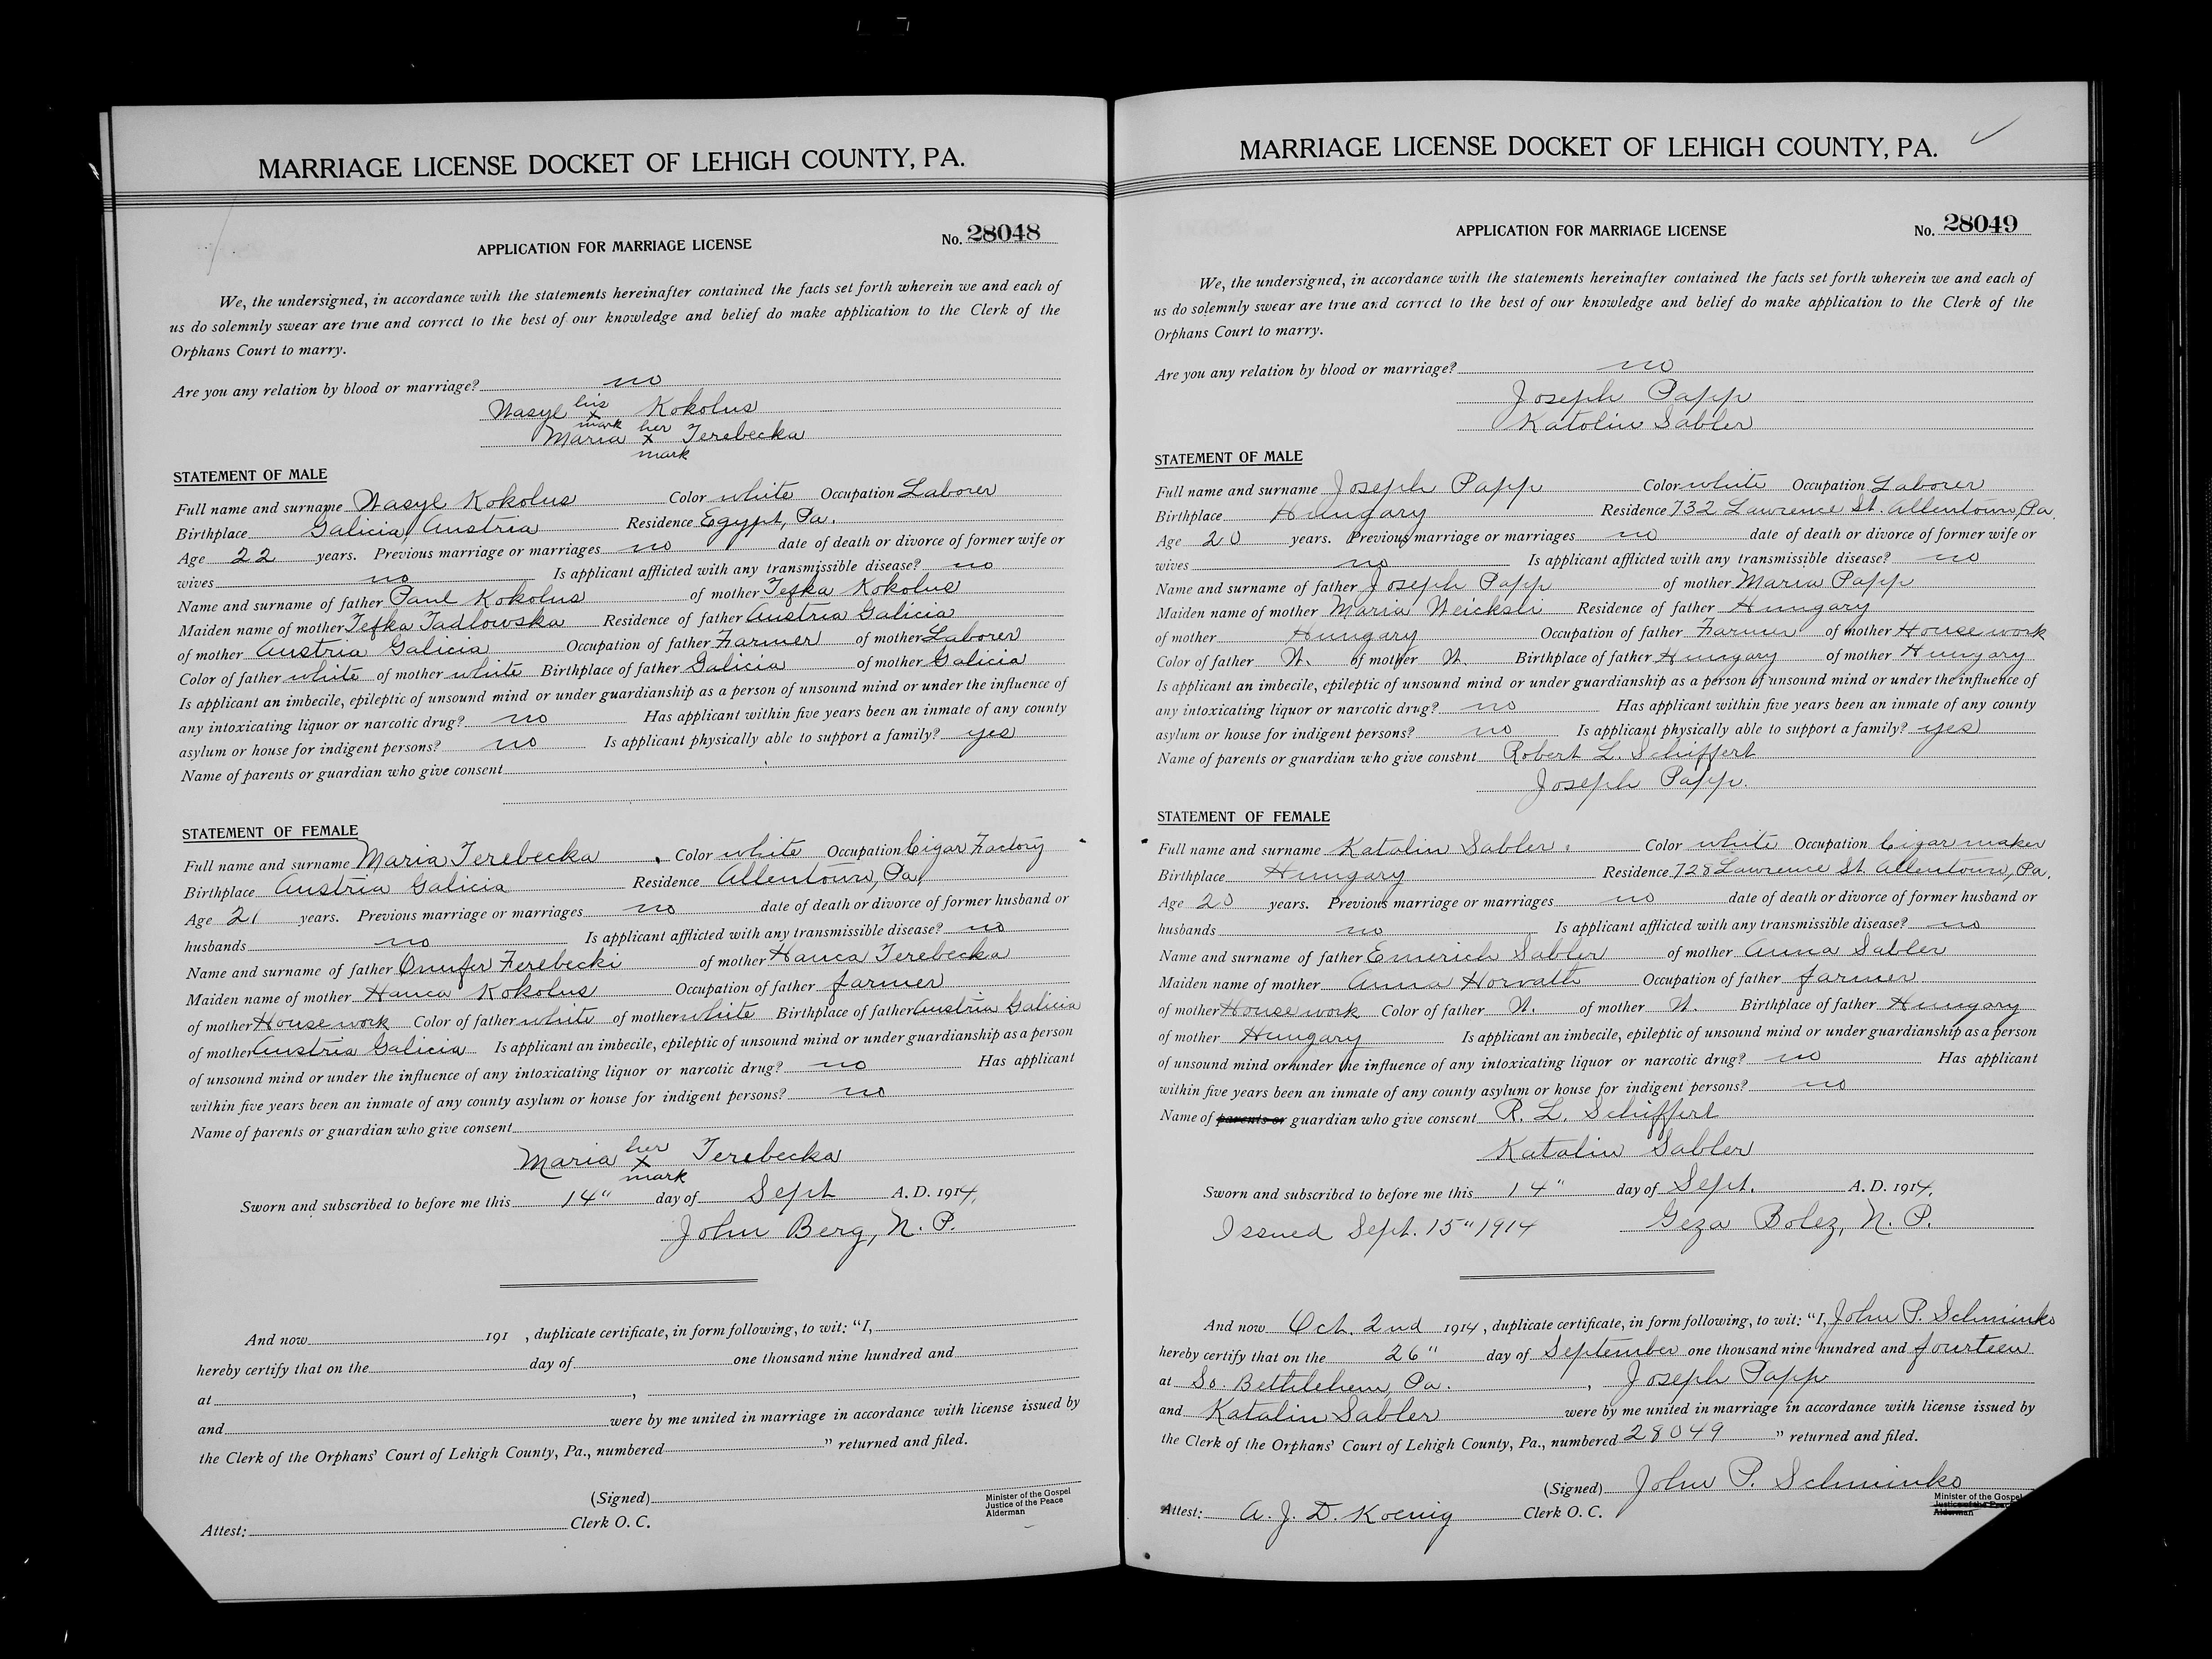 MARRIAGE LICENSE DOCKET OF LEHIGH COUNTY, PA.
APPLICATION FOR MARRIAGE LICENSE No. 28048
We, the undersigned, in accordance with the statements hereinafter contained the facts set forth wherein we and each of
us do solemnly swear are true and correct to the best of our knowledge and belief do make application to the Clerk of the
Orphans Court to marry.
Are you any relation by blood or marriage? no
Wasyl his x mark Kokolus
Maria her x mark Terebecka
STATEMENT OF MALE
Full name and surname Wasyl Kokolus Color white Occupation Laborer
Birthplace Galicia, Austria Residence Egypt, Pa.
Age 22 years. Previous marriage or marriages no date of death or divorce of former wife or
wives no Is applicant afflicted with any transmissible disease? no
Name and surname of father Paul Kokolus of mother Tefka Kokolus
Maiden name of mother Tefka Tadlowska Residence of father Austria Galicia
of mother Austria Galicia Occupation of father Farmer of mother Laborer
Color of father white of mother white Birthplace of father Galicia of mother Galicia
Is applicant an imbecile, epileptic of unsound mind or under guardianship as a person of unsound mind or under the influence of
any intoxicating liquor or narcotic drug? no Has applicant within five years been an inmate of any county
asylum or house for indigent persons? no Is applicant physically able to support a family? yes
Name of parents or guardian who give consent
STATEMENT OF FEMALE
Full name and surname Maria Terebecka Color white Occupation Cigar Factory
Birthplace Austria Galicia Residence Allentown, Pa.
Age 21 years. Previous marriage or marriages no date of death or divorce of former husband or
husbands no Is applicant afflicted with any transmissible disease? no
Name and surname of father Onufer Terebecki of mother Hanca Terebecka
Maiden name of mother Hanca Kokolus Occupation of father farmer
of mother House work Color of father white of mother white Birthplace of father Austria Galicia
of mother Austria Galicia Is applicant an imbecile, epileptic of unsound mind or under guardianship as a person
of unsound mind or under the influence of any intoxicating liquor or narcotic drug? no Has applicant
within five years been an inmate of any county asylum or house for indigent persons? no
Name of parents or guardian who give consent
Maria her x mark Terebecka
Sworn and subscribed to before me this 14" day of Sept A. D. 1914,
John Berg, N. P.
And now 191 , duplicate certificate, in form following, to wit: "I,
hereby certify that on the day of one thousand nine hundred and
at ,
and were by me united in marriage in accordance with license issued by
the Clerk of the Orphans' Court of Lehigh County, Pa., numbered " returned and filed.
(Signed) Minister of the Gospel
Justice of the Peace
Alderman
Attest: Clerk O. C.
MARRIAGE LICENSE DOCKET OF LEHIGH COUNTY, PA.
APPLICATION FOR MARRIAGE LICENSE No. 28049
We, the undersigned, in accordance with the statements hereinafter contained the facts set forth wherein we and each of
us do solemnly swear are true and correct to the best of our knowledge and belief do make application to the Clerk of the
Orphans Court to marry.
Are you any relation by blood or marriage? no
Joseph Papp
Katolin Sabler
STATEMENT OF MALE
Full name and surname Joseph Papp Color white Occupation Laborer
Birthplace Hungary Residence 732 Lawrence St. Allentown, Pa.
Age 20 years. Previous marriage or marriages no date of death or divorce of former wife or
wives no Is applicant afflicted with any transmissible disease? no
Name and surname of father Joseph Papp of mother Maria Papp
Maiden name of mother Maria Weicksli Residence of father Hungary
of mother Hungary Occupation of father Farmer of mother House work
Color of father W. of mother W. Birthplace of father Hungary of mother Hungary
Is applicant an imbecile, epileptic of unsound mind or under guardianship as a person of unsound mind or under the influence of
any intoxicating liquor or narcotic drug? no Has applicant within five years been an inmate of any county
asylum or house for indigent persons? no Is applicant physically able to support a family? yes
Name of parents or guardian who give consent Robert L. Schiffert
Joseph Papp.
STATEMENT OF FEMALE
Full name and surname Katalin Sabler. Color white Occupation Cigar maker
Birthplace Hungary Residence 728 Lawrence St. Allentown, Pa.
Age 20 years. Previous marriage or marriages no date of death or divorce of former husband or
husbands no Is applicant afflicted with any transmissible disease? no
Name and surname of father Emerich Sabler of mother Anna Sabler
Maiden name of mother Anna Horvath Occupation of father farmer
of mother House work Color of father W. of mother W. Birthplace of father Hungary
of mother Hungary Is applicant an imbecile, epileptic of unsound mind or under guardianship as a person
of unsound mind or under the influence of any intoxicating liquor or narcotic drug? no Has applicant
within five years been an inmate of any county asylum or house for indigent persons? no
Name of parents or guardian who give consent R. L. Schiffert
Katalin Sabler
Sworn and subscribed to before me this 14" day of Sept. A. D. 1914.
Issued Sept. 15" 1914 Geza Bolez, N. P.
And now Oct. 2nd 1914, duplicate certificate, in form following, to wit: "I, John P. Schminko
hereby certify that on the 26" day of September one thousand nine hundred and fourteen
at So. Bethlehem, Pa. , Joseph Papp
and Katalin Sabler were by me united in marriage in accordance with license issued by
the Clerk of the Orphans' Court of Lehigh County, Pa., numbered 28049 " returned and filed.
(Signed) John P. Schminko
Minister of the Gospel
Justice of the Peace
Alderman
Attest: A. J. D. Koenig Clerk O. C.